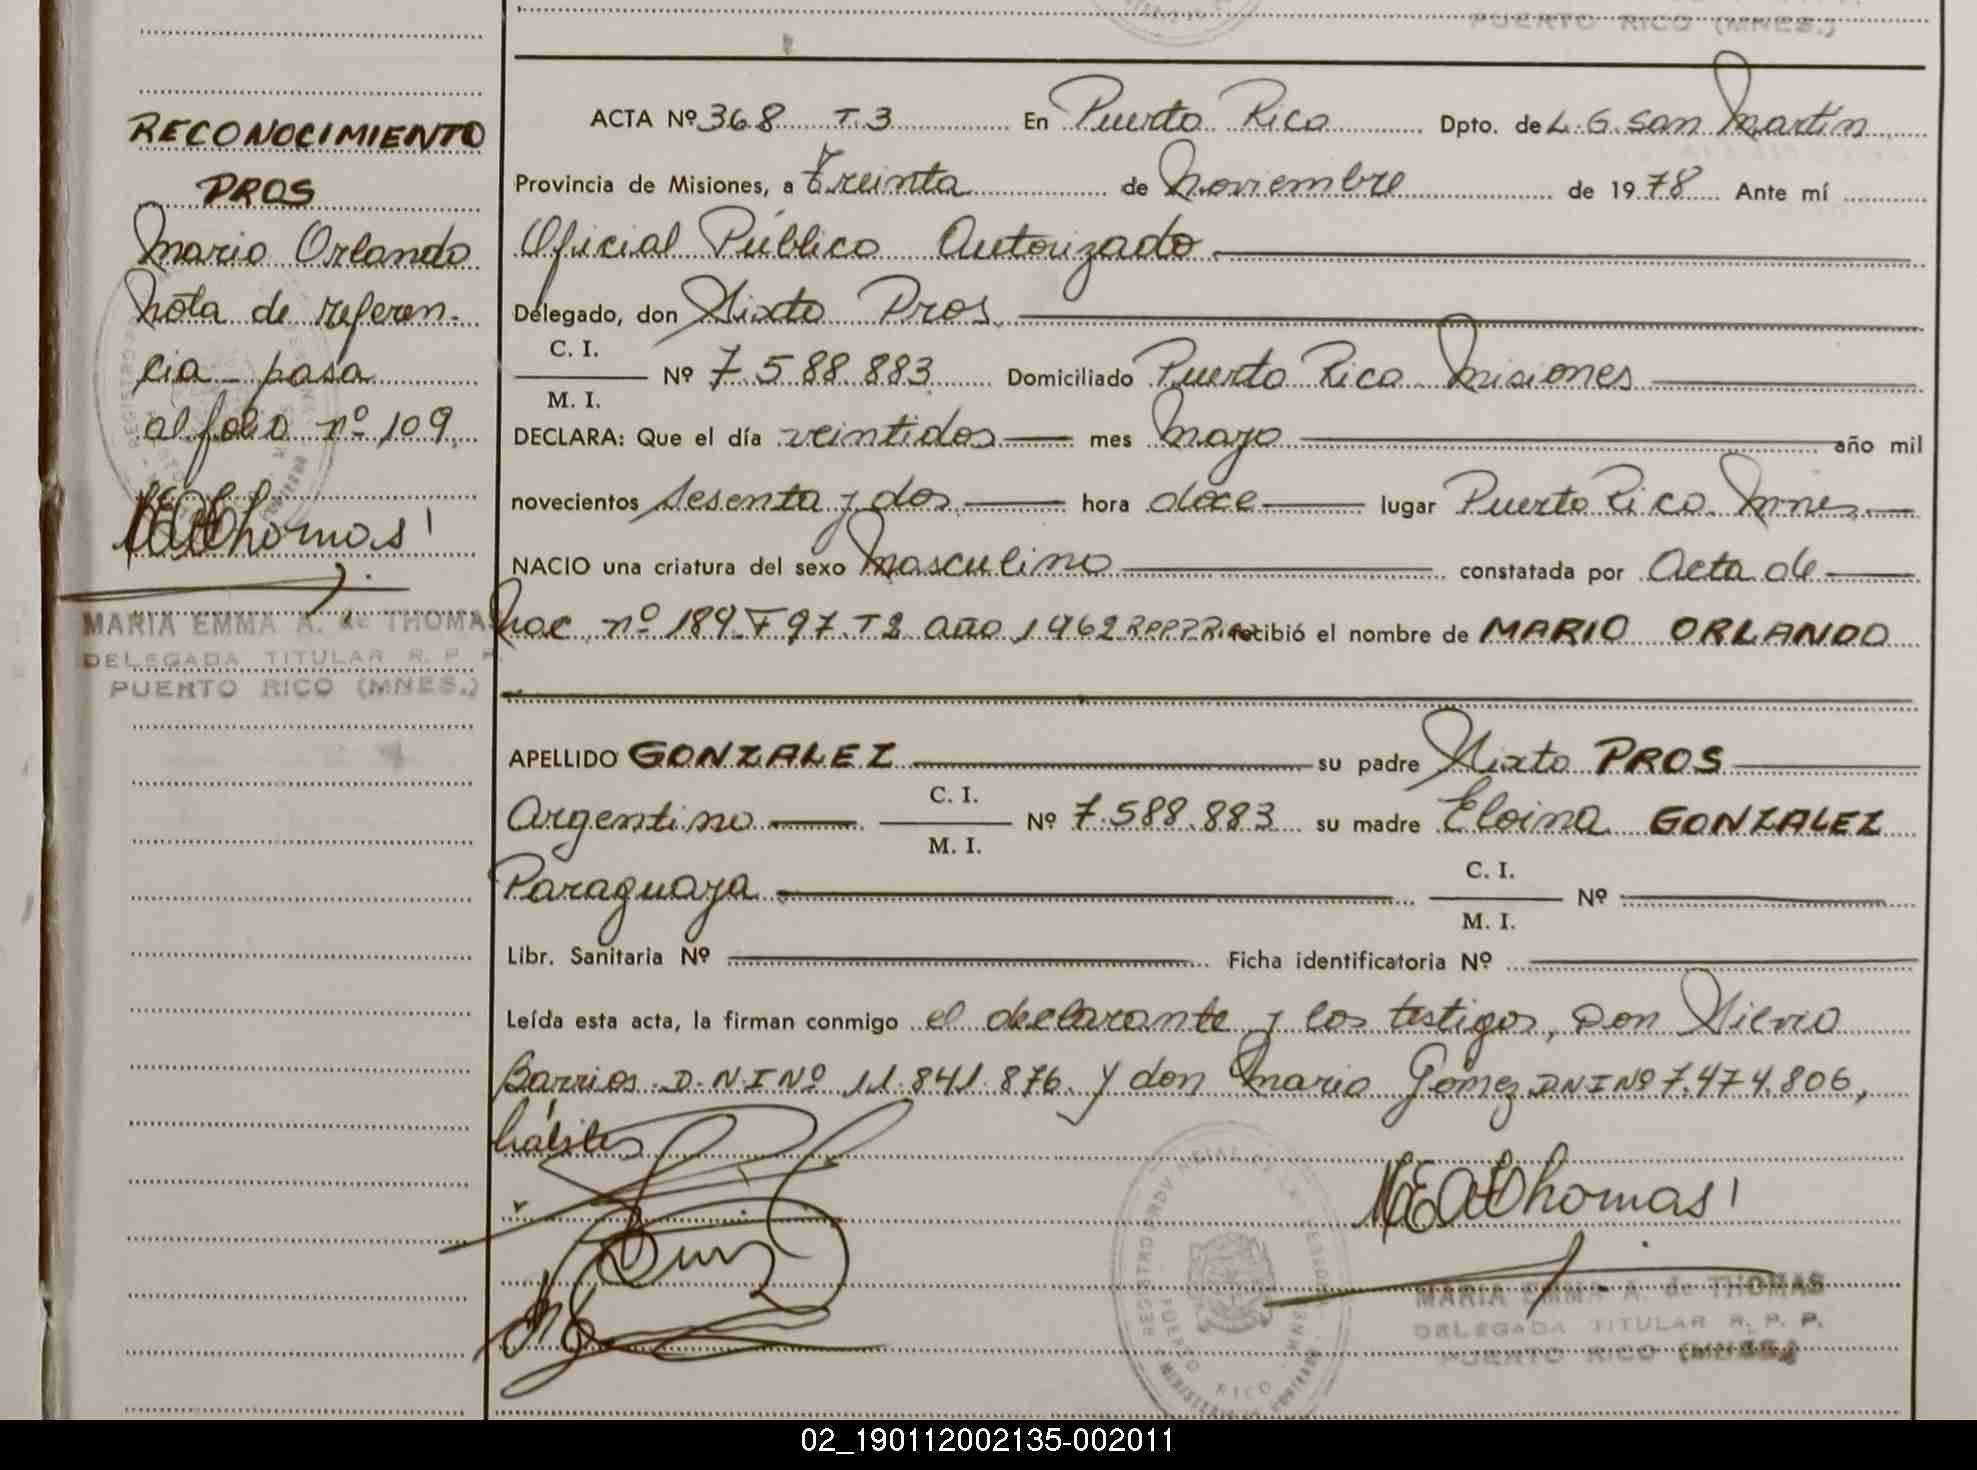 PUERTO RICO (MNES.)
RECONOCIMIENTO
PROS
Mario Orlando
Nota de referen-
cia - pasa
al folio nº 109
MEAdeThomas
MARIA EMMA A. de THOMAS
DELEGADA TITULAR R. P. P.
PUERTO RICO (MNES.)
ACTA Nº 368 T.3 En Puerto Rico Dpto. de L. G. San Martín
Provincia de Misiones, a treinta de Noviembre de 1978 Ante mí
Oficial Público Autorizado
Delegado, don Sixto Pros
C. I.
M. I. Nº 7.588.883 Domiciliado Puerto Rico Misiones
DECLARA: Que el día veintidos mes Mayo año mil
novecientos sesenta y dos hora doce lugar Puerto Rico Mnes
NACIO una criatura del sexo Masculino constatada por Acta de
Nac. nº 189 F 97 T2 año 1962 recibió el nombre de MARIO ORLANDO
APELLIDO GONZALEZ su padre Sixto PROS
Argentino C. I.
M. I. Nº 7.588.883 su madre Eloina GONZALEZ
Paraguaya C. I.
M. I. Nº
Libr. Sanitaria Nº Ficha identificatoria Nº
Leída esta acta, la firman conmigo el declarante y los testigos, Don
Barrios D.N.I Nº 11.841.876 y don Mario Gómez DNI Nº 7.474.806,
hábiles
MEAdeThomas
MARIA EMMA A. de THOMAS
DELEGADA TITULAR R. P. P.
PUERTO RICO (MNES.)
02_190112002135-002011